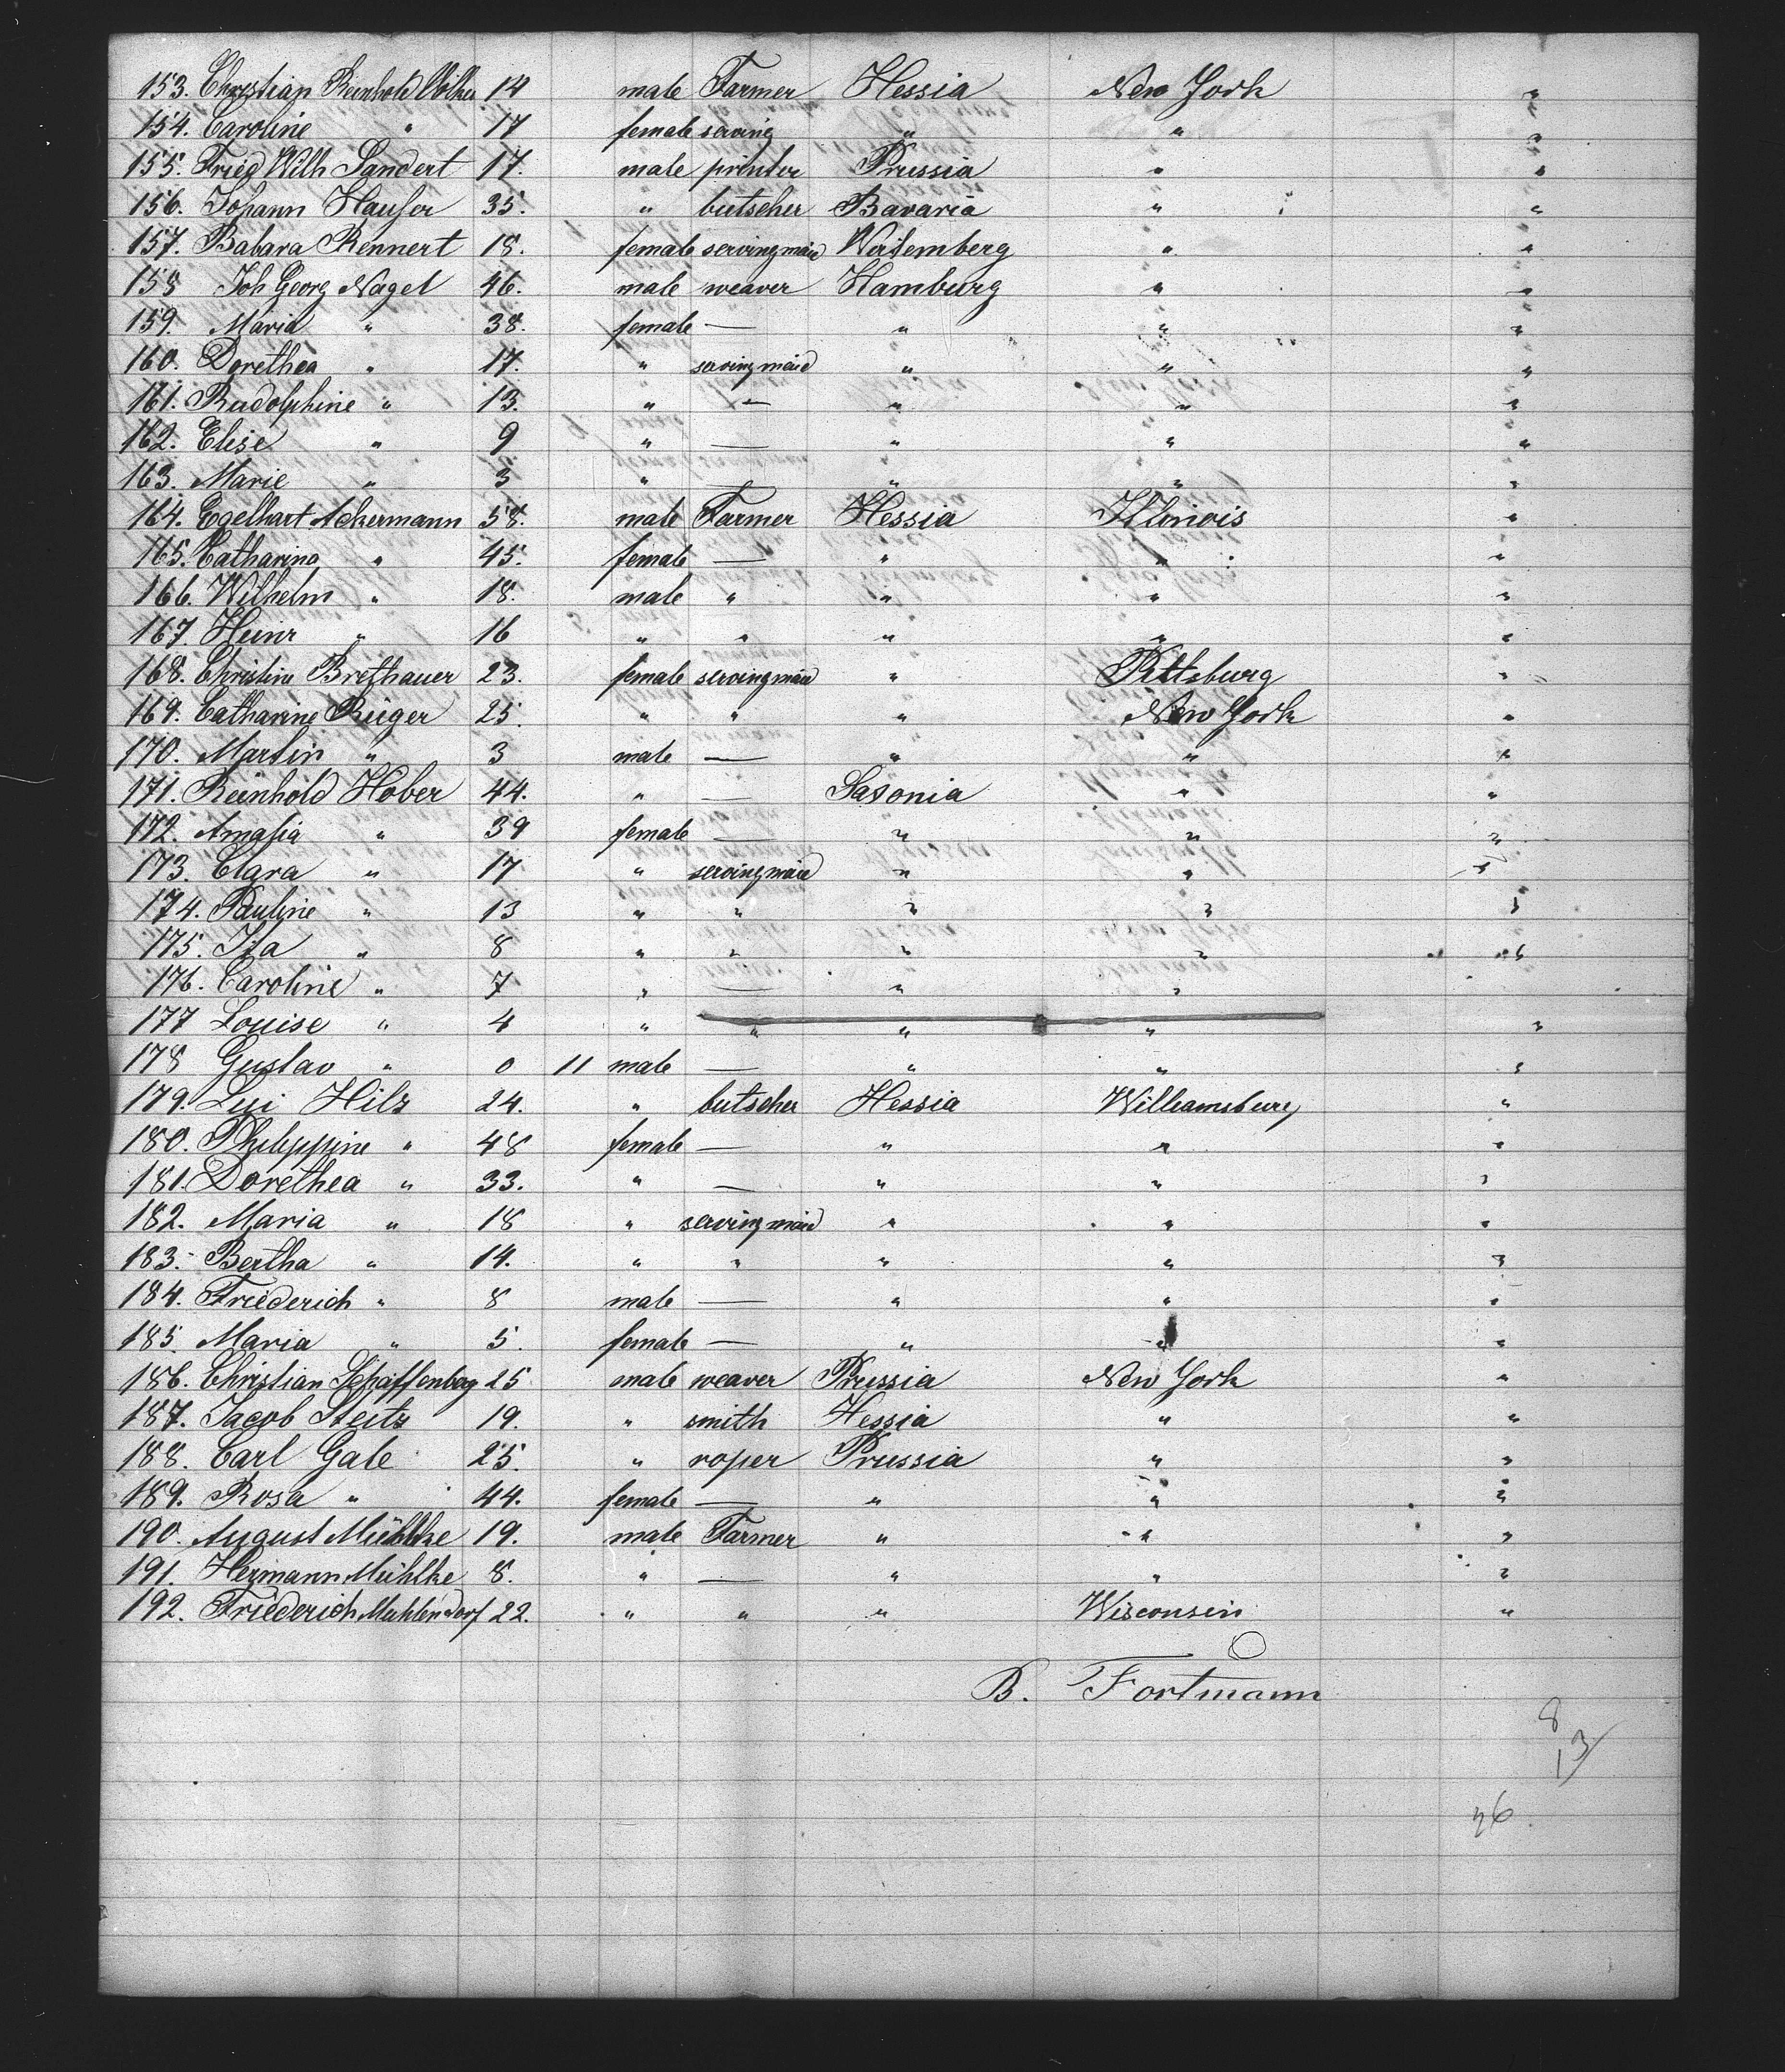 153. Christian Reinhold Völker 14 male Farmer Hessia New York "
154. Caroline " 17 female serving " " "
155. Fried Wilh Sandert 17. male printer Prussia " "
156. Johann Hauser 35. " butscher Bavaria " "
157. Babara Rennert 18. female servingmaid Würtemberg " "
158 Joh Georg Nagel 46. male weaver Hamburg " "
159. Maria " 38. female — " " "
160. Dorethea " 17. " servingmaid " " "
161. Rudolphine " 13. " — " " "
162. Elise " 9 " — " " "
163. Marie " 3 " — " " "
164. Egelhart Ackermann 58. male Farmer Hessia Illinois "
165. Catharina " 45. female — " " "
166. Wilhelm " 18. male " " " "
167. Heinr " 16 " " " " "
168. Christine Brethauer 23. female servingmaid " Pittsburg "
169. Catharine Rüger 25. " " " New York "
170. Martin " 3 male — " " "
171. Reinhold Hober 44. " — Saxonia " "
172. Amalia " 39 female — " " "
173. Clara " 17 " servingmaid " " "
174. Pauline " 13 " " " " "
175. Ita " 8 " " " " "
176. Caroline " 7 " — " "
177 Louise " 4 " " " " "
178 Gustav " 0 11 male — " " "
179. Lui Hilz 24. " butscher Hessia Williamsburg "
180. Philippine " 48 female — " " "
181. Dorethea " 33. " — " " "
182. Maria " 18 " servingmaid " " "
183. Bertha " 14. " " " " "
184. Friederich " 8 male — " " "
185. Maria " 5. female — " " "
186. Christian Schaffenberg 25 male weaver Prussia New York "
187. Jacob Steitz 19. " smith Hessia " "
188. Carl Gale 25. " roper Prussia " "
189. Rosa " 44. female — " " "
190. August Mühlke 19. male Farmer " " "
191. Hermann Mühlke 8. " — " " "
192. Friederich Muhlendorf 22. " " " Wisconsin "
B. Fortmann
8
13
26